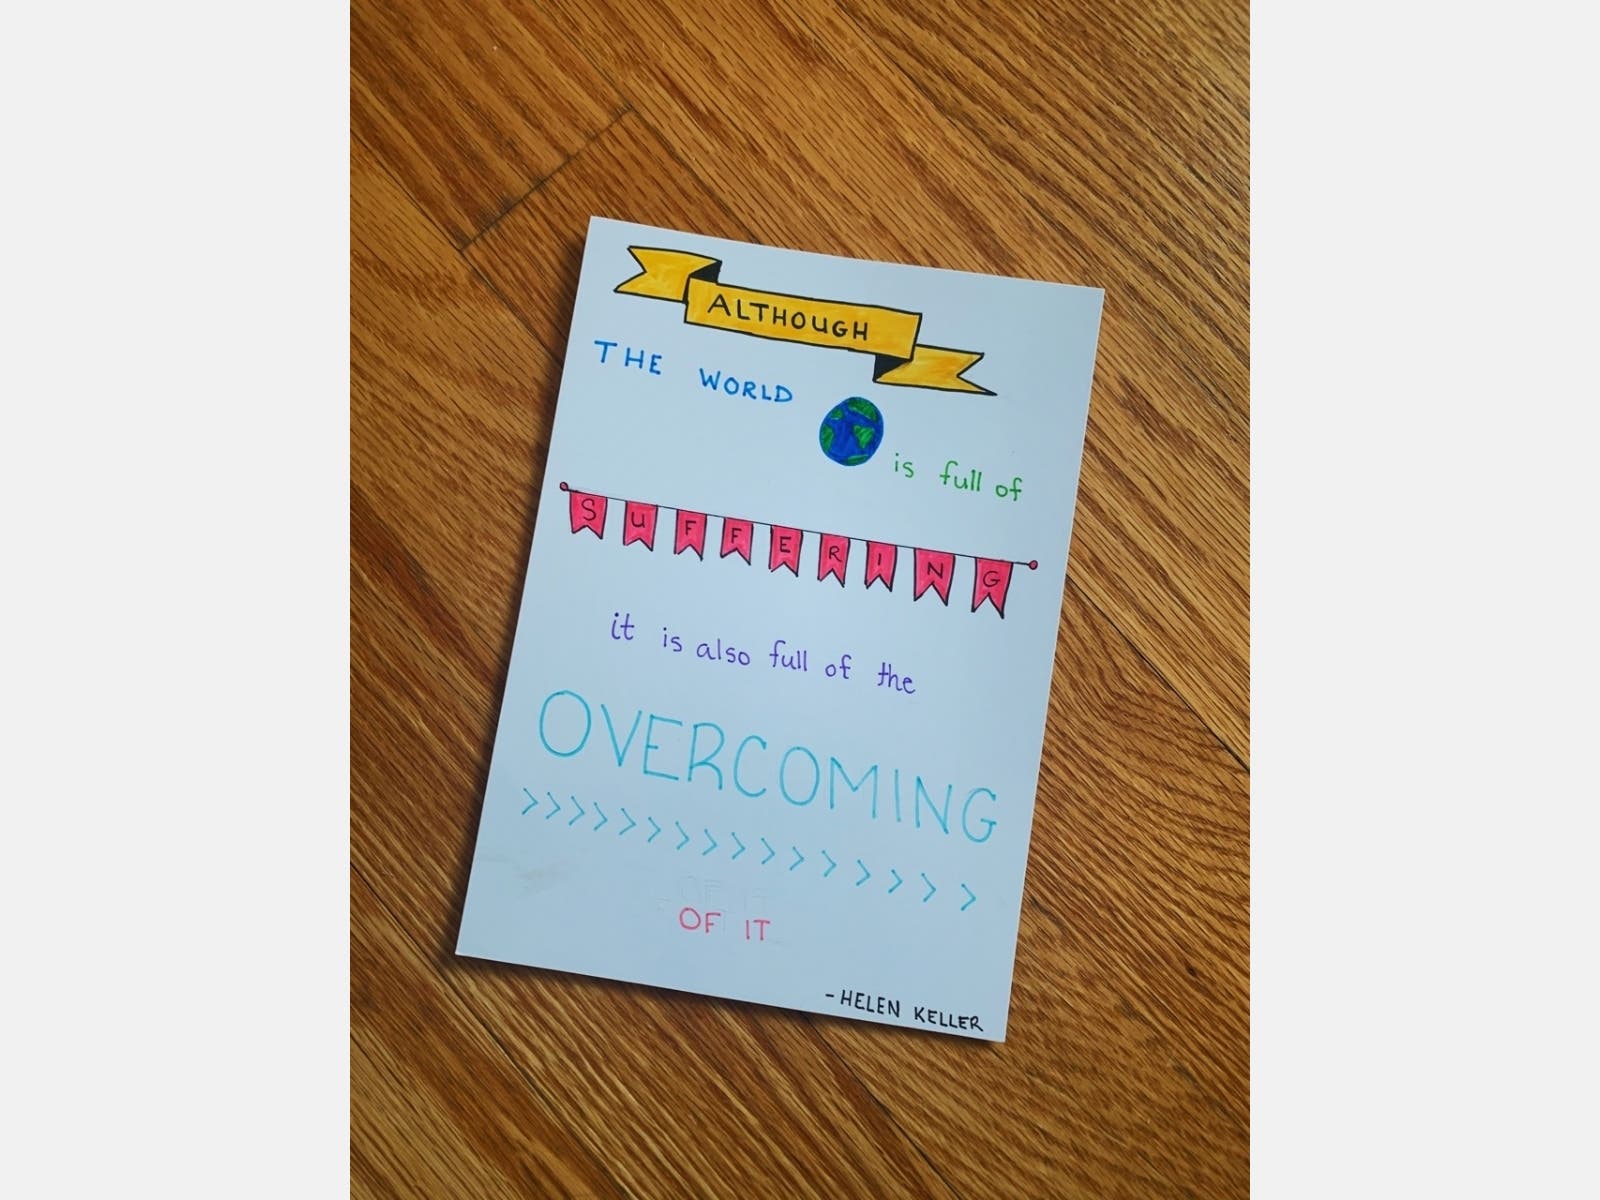 ALTHOUGH
THE WORLD
is full of
SUFFERING
it is also full of the
OVERCOMING
>>>>>>>>>>>>>>>>
OF IT
- HELEN KELLER